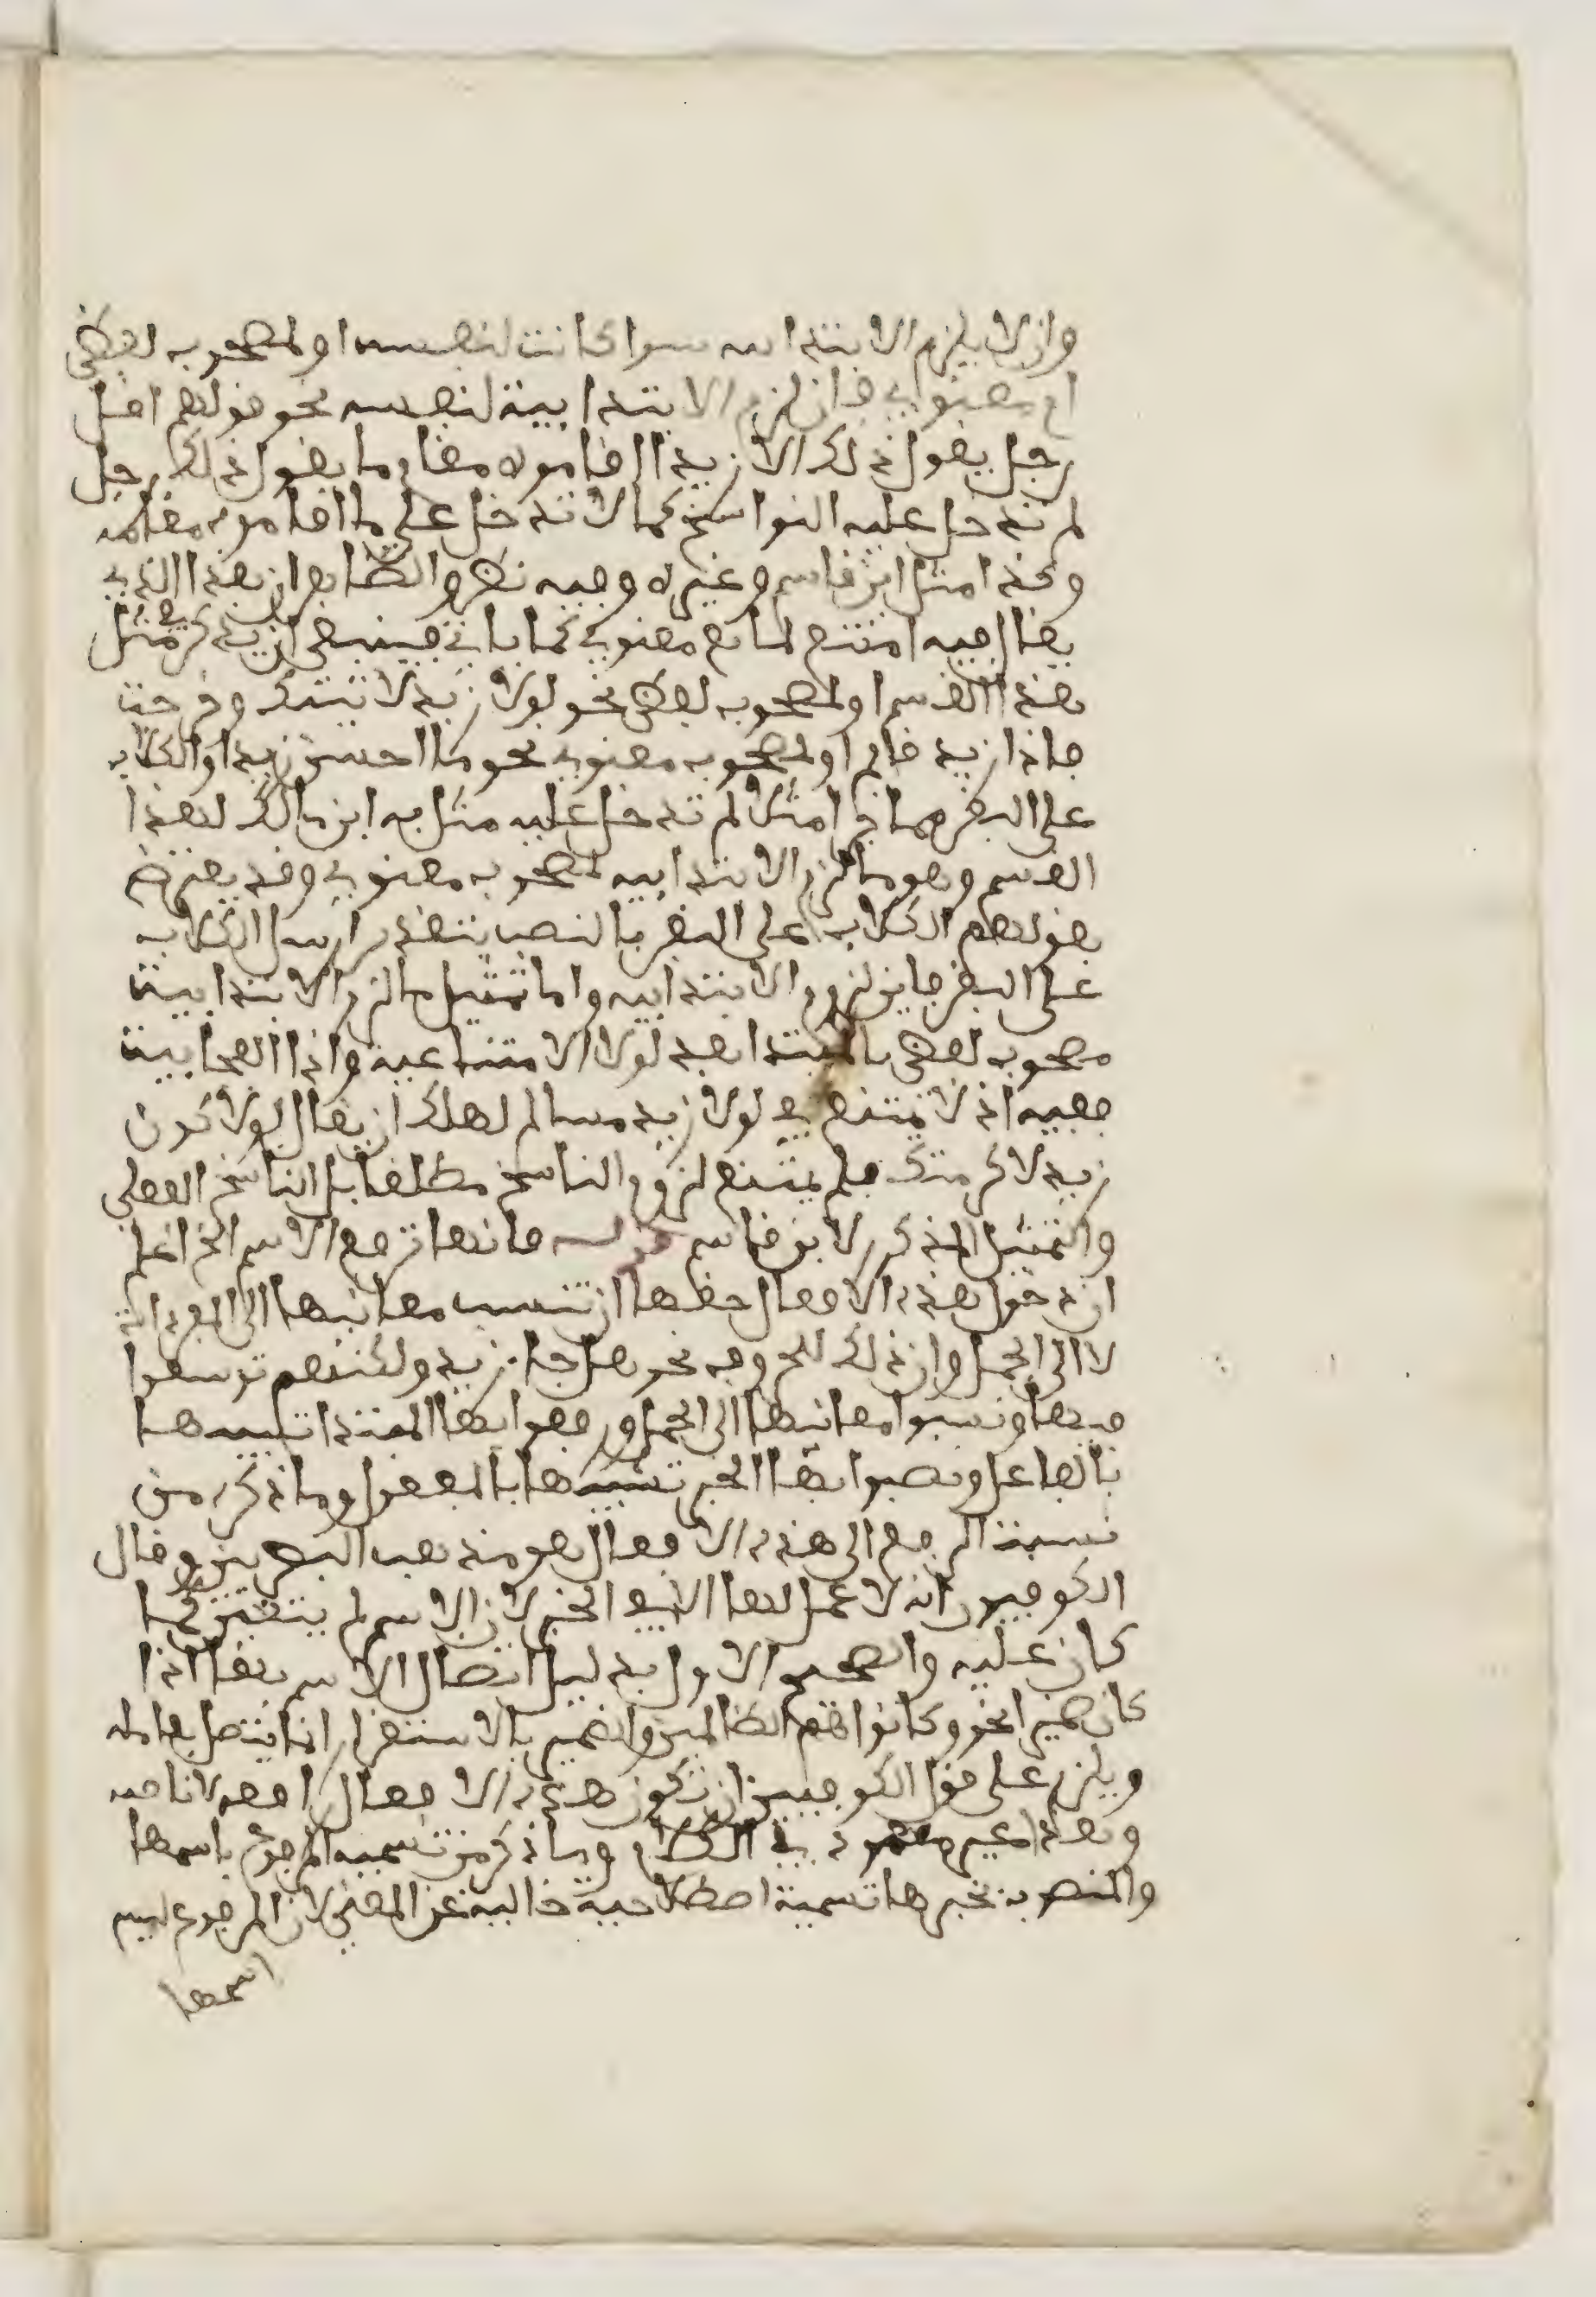 وان لا يلزم الابتدائيه سوا كانت لنفسه او لمصحوب لفظي
او معنوي فان لزم الابتدائية لنفسه نحو قولهم اقل
رجل يقول ذلك الا زيد اقاموه مقام ما يقول ذلك رجل
لم تدخل عليه النواسخ كما لا تدخل على ما اقاموه مقامه
وكذا مثل ابن قاسم وغيره وفيه نظر والظاهر ان هذا الذي
يقال فيه امتنع لمانع معنوي كما ياتي فينبغي ان يذكر في مثل
هذا القسم او لمصحوب لفظي نحو لولا زيد لاتيتك وخرجت
فاذا زيد قايم او لمصحوب معنوي نحو ما احسن زيدا والكلاب
على البقر فهما في امثلا لم تدخل عليه مثل به ابن مالك لهذا
القسم وهو ما لزم الابتدائيه لمصحوب معنوي وقد يعترض
بقولهم الكلاب على البقر بالنصب بتقدير ارسل الكلاب
على البقر فاين لزوم الابتدائيه واما تمثيل ما لزم الابتدائية
مصحوب لفظي بالمبتدا بعد لولا الامتناعية واذا الفجائية
ففيه اذ لا يمتنع في لولا زيد مسالم لهلك ان يقال لولا كون
زيد لاكرمتك فلم يمتنع لزوم الناسخ مطلقا بل الناسخ الفعلي
والتمثيل المذكور لابن قاسم قوله فانها ترفع الاسم الخ اعلم
ان دخول هذه الافعال حقها ان تنسب معانيها الى المفردات
لا الى الجمل وان ذلك للحروف نحو هل جا زيد ولكنهم توسعوا
فيها ونسبوا معانيها الى الجمل ورفعوا بها المبتدا تشبيها
بالفاعل ونصبوا بها الخبر تشبيها بالمفعول وما ذكره من
نسبة الرفع الى هذه الافعال هو مذهب البصريين وقال
الكوفيون انه لا عمل لها الا في الخبر لان الاسم لم يتغير عما
كان عليه والصحيح الاول بدليل اتصال الاسم بها اذا
كان ضميرا نحو وكانوا هم الظالمين والضمير بالاستقرار انما يتصل بعامله
ويلزم على قول الكوفيين ان تكون هذه الافعال رافعه لا ناصبه
وهذا غير معهود في الكلام وما ذكر من تسمية المرفوع باسمها
والمنصوب بخبرها تسمية اصطلاحية خالية عن المعنى لان المرفوع ليس
اسمها